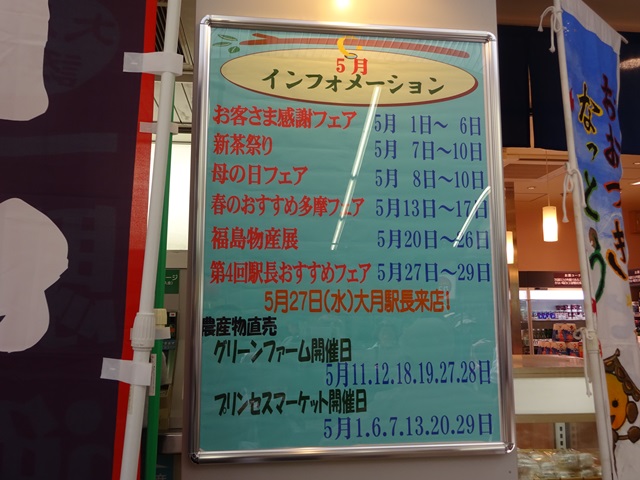 5月
インフォメーション
お客さま感謝フェア 5月 1日～ 6日
新茶祭り 5月 7日～10日
母の日フェア 5月 8日～10日
春のおすすめ多摩フェア 5月13日～17日
福島物産展 5月20日～26日
第4回駅長おすすめフェア 5月27日～29日
5月27日(水)大月駅長来店!
農産物直売
グリーンファーム開催日
5月11.12.18.19.27.28日
プリンセスマーケット開催日
5月1.6.7.13.20.29日
おおつき
なっとう